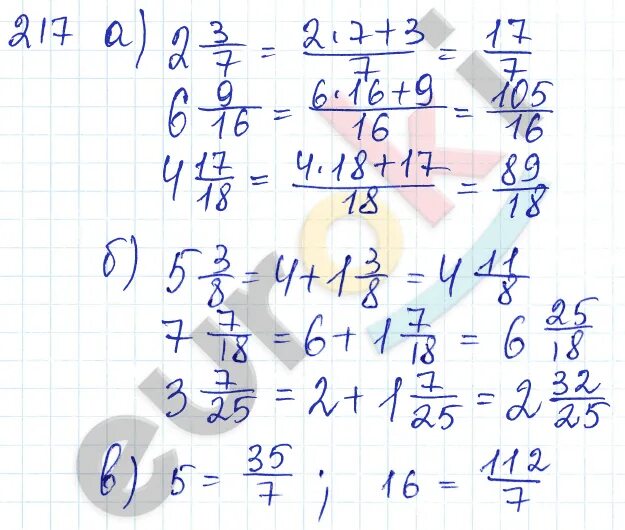 217 а) 2 3/7 = (2·7+3)/7 = 17/7
6 9/16 = (6·16+9)/16 = 105/16
4 17/18 = (4·18+17)/18 = 89/18
б) 5 3/8 = 4+1 3/8 = 4 11/8
7 7/18 = 6+1 7/18 = 6 25/18
3 7/25 = 2+1 7/25 = 2 32/25
в) 5 = 35/7 ; 16 = 112/7
euroki